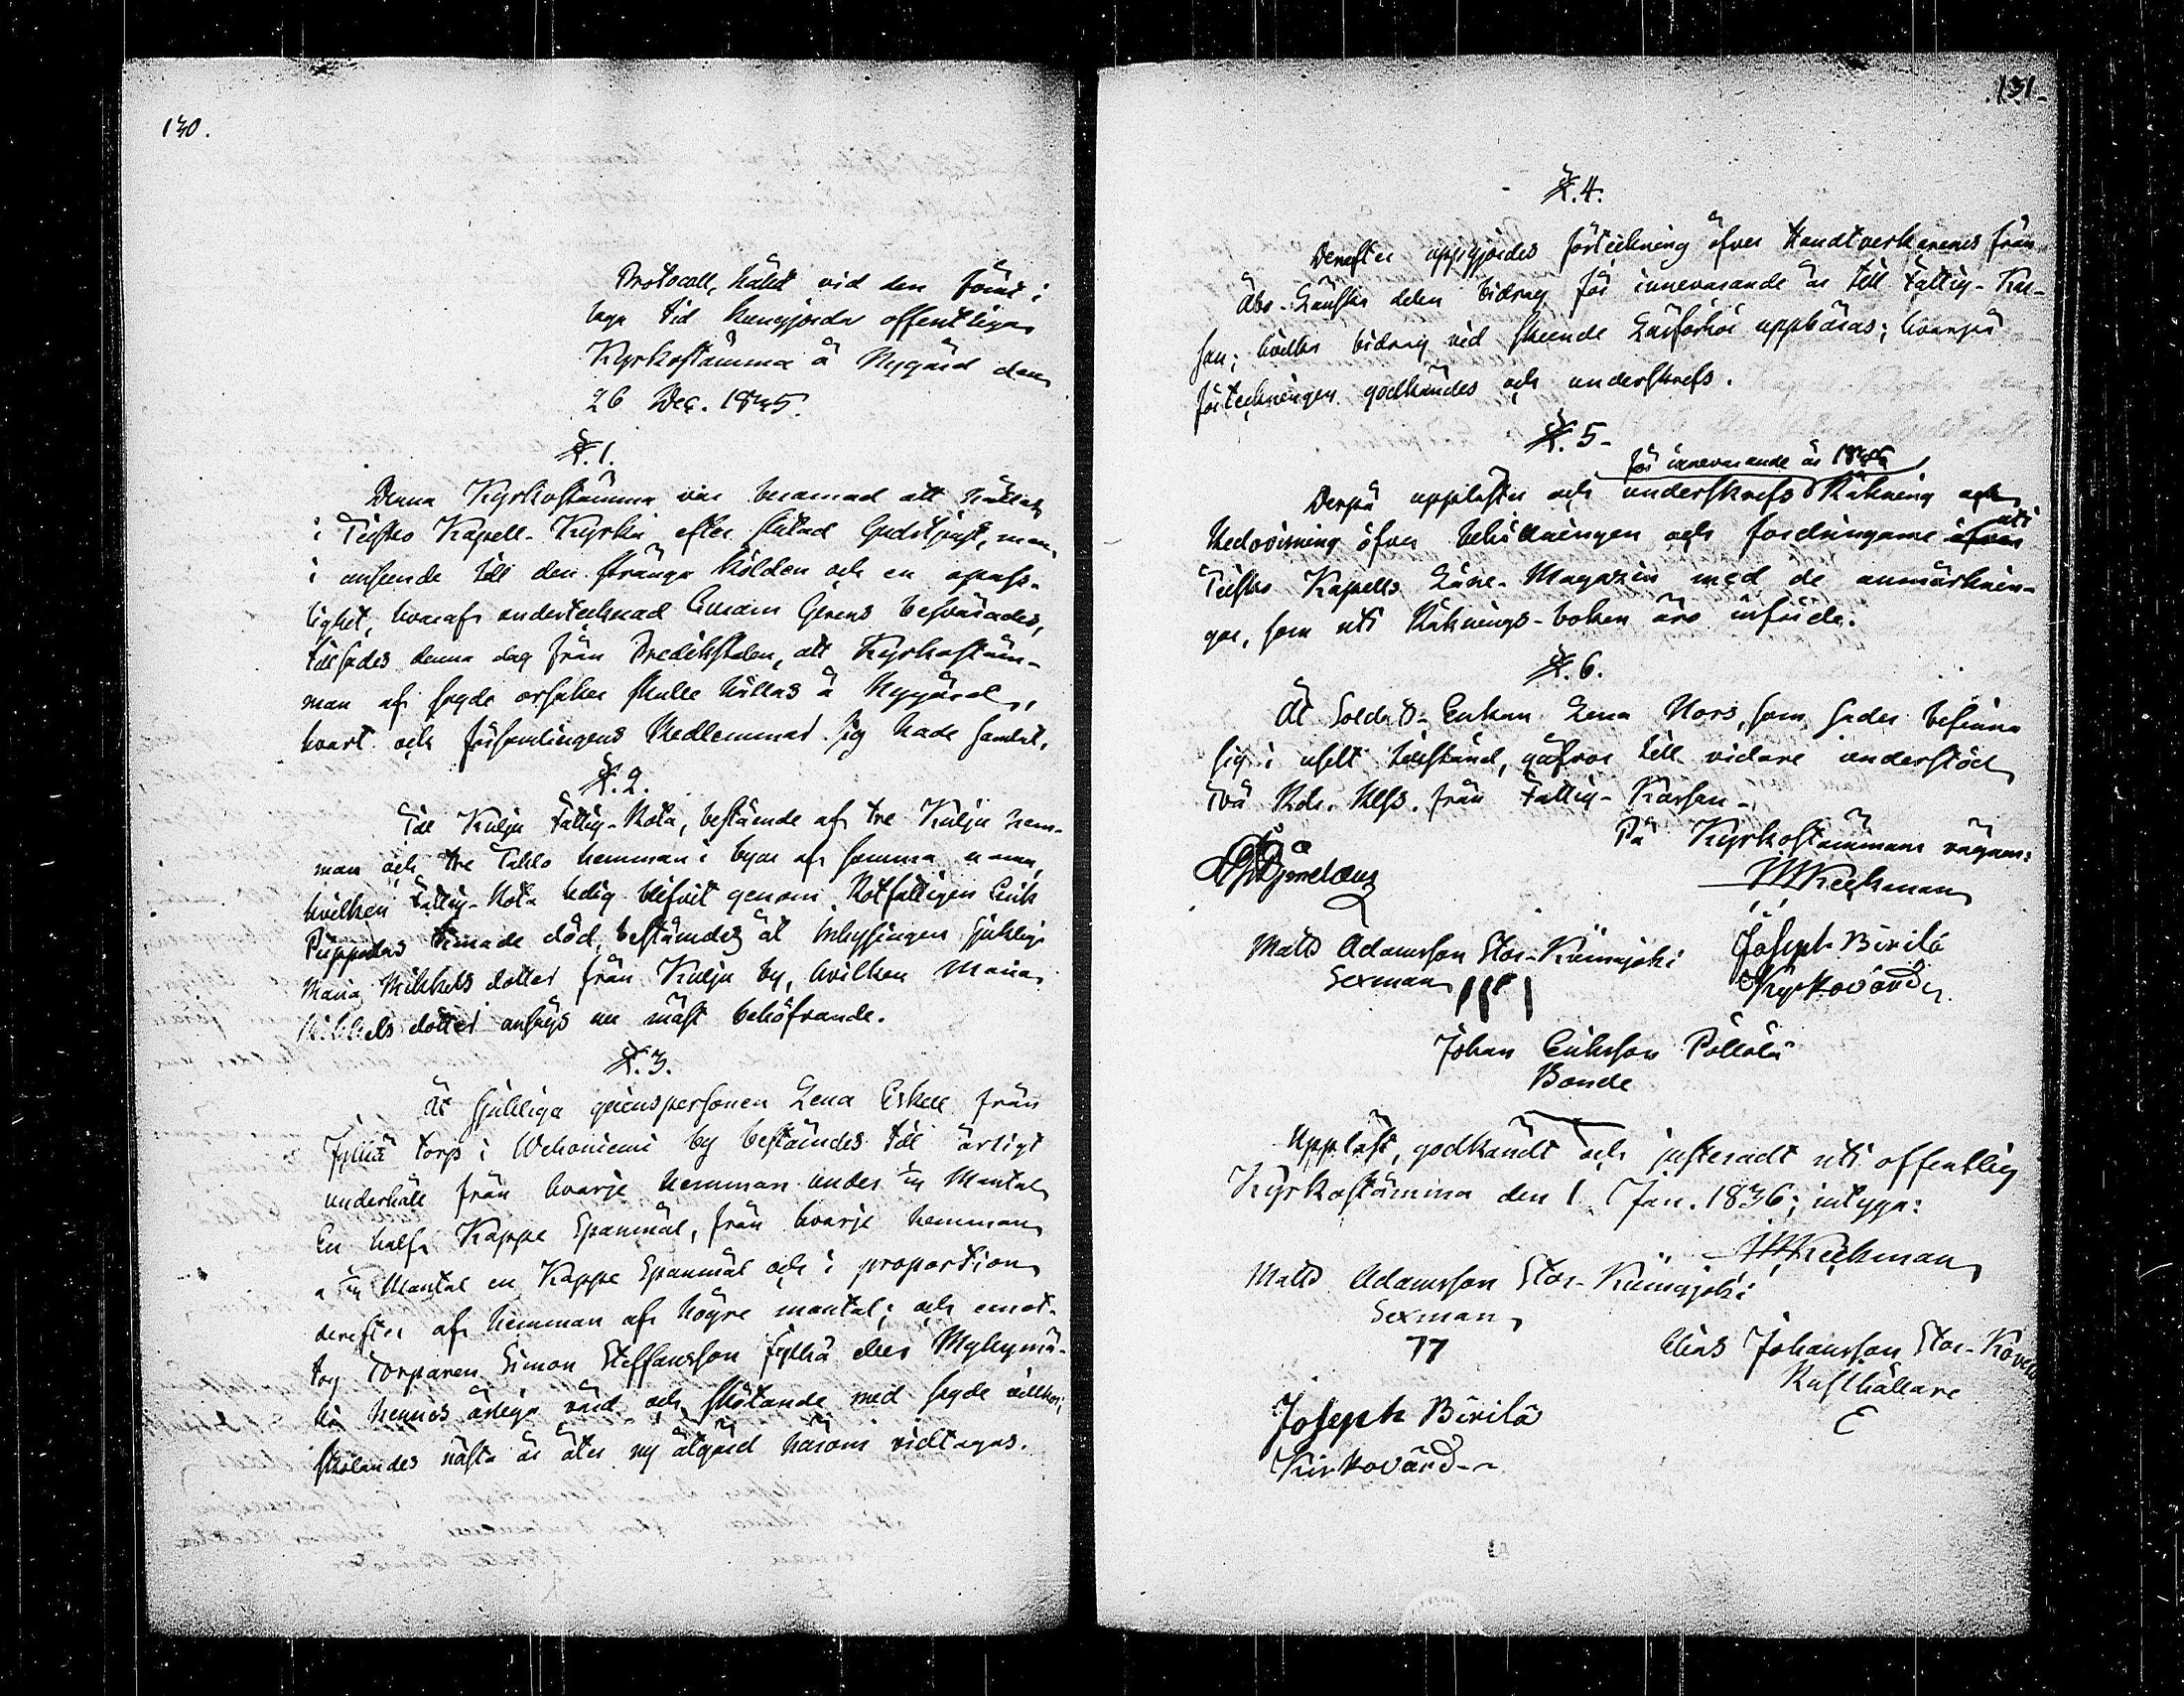 130.
Protocoll, hållet vid den förut i
laga tid kungjorda offentliga
Kyrkostämma å Nygård den
26 Dec. 1835.
§.1.
Denna Kyrkostämma var beramad att hållas
i Kapell-Kyrka efter slutad Gudstjenst, men
i anseende till den stränga kölden och en opass-
lighet, hvaraf undertecknad besvärades,
tillsades denna dag från Predikstolen, att Kyrkostäm-
man af sagde orsaker skulle hållas å Nygård,
hvart och församlingens Medlemmar sig hade samlat.
§.2.
Till Kulju Fattig-Rota, bestående af tre Kulju hem-
man och tre Takko hemman i byar af samma namn,
hvilken Fattig-Rota ledig blifvit genom Rotfattigen Erik
timade död, bestämdes åt Inhysingen sjuklige
Maria Mikkels dotter från Kulju by, hvilken Maria
Mikkels dotter ansågs nu mäst behöfvande.
§.3.
Åt sjukliga qvinspersonen Lena Eskell från
Jylhä torp i Wehoniemi by bestämdes till årligt
underhåll från hvarje hemman under Mantal
En half Kappe Spanmål, från hvarje hemman
a Mantal en Kappe Spanmål och i proportion
derefter af hemman af högre mantal; och emot-
tog Torparen Simon Steffansson Jylhä eller Myllymä-
ki hennes årliga vård och skötande med sagde villkor;
skolandes nästa år åter ny åtgärd härom vidtagas.
131.
§.4.
Derefter uppgjordes förteckning öfver Handtverkarenes från
Åbo-Länska delen bidrag för innevarande år till Fattig-Kas-
san; hvilka bidrag vid skeende Läsförhör uppbäras; hvarpå
förteckningen godkändes och underskrefs.
§.5.
för innevarande år
Derpå upplästes och underskrefs Räkning och
Redovisning öfver behållningen och fordringarne öfver uti
Kapells Låne-Magazin med de anmärknin-
gar, som uti Räknings-boken äro införde.
§.6.
Åt Soldats-Enkan Lena Mors, som sades befinna
sig i uselt tillstånd, gafvos till vidare understöd
Två Rdr. Rgs. från Fattig-Kassan.
På Kyrkostämmans vägnar:
Matts Adamsson Stor-Kümajoki
Sexman
Joseph Birilä
Kyrkovärd
Johan Eriksson Pällälä
Bonde
Uppläst, godkändt och justeradt uti offentlig
Kyrkostämma den 1 Jan. 1836; intyga:
Matts Adamsson Stor-Kümajoki
Sexman
Elias Johansson Stor-
Rusthållare
E
Joseph Birilä
Kirkovärd